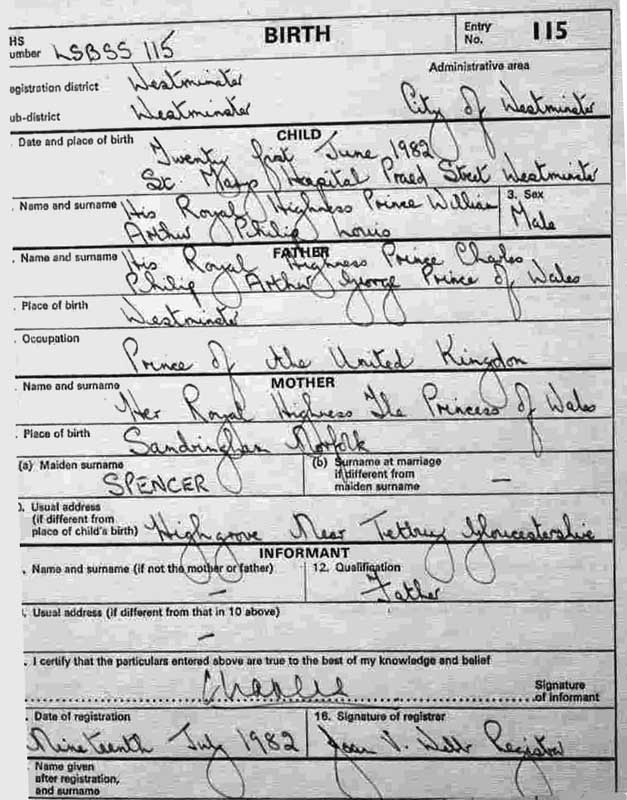 HS BIRTH Entry 115
umber LSBSS 115 No.
egistration district Westminster Administrative area
ub-district Westminster City of Westminster
CHILD
Date and place of birth Twenty first June 1982
St. Marys Hospital Praed Street Westminster
Name and surname His Royal Highness Prince William 3. Sex
Arthur Philip Louis Male
FATHER
Name and surname His Royal Highness Prince Charles
Philip Arthur George Prince of Wales
Place of birth Westminster
Occupation
Prince of the United Kingdom
MOTHER
Name and surname
Her Royal Highness The Princess of Wales
Place of birth Sandringham Norfolk
(a) Maiden surname (b) Surname at marriage
SPENCER if different from —
maiden surname
). Usual address
(if different from
place of child's birth) Highgrove Near Tetbury Gloucestershire
INFORMANT
Name and surname (if not the mother or father) 12. Qualification
— Father
Usual address (if different from that in 10 above)
—
I certify that the particulars entered above are true to the best of my knowledge and belief
Charles Signature
of informant
Date of registration 16. Signature of registrar
Nineteenth July 1982 Joan V. Webb Registrar
Name given
after registration,
and surname